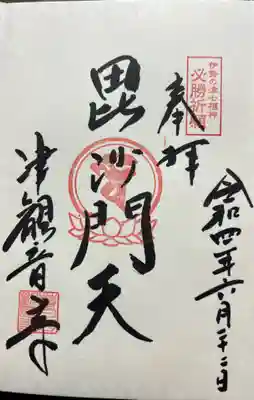 伊勢の津七福神
必勝祈願
奉拝
毘沙門天
令和四年六月二十二日
津観音寺